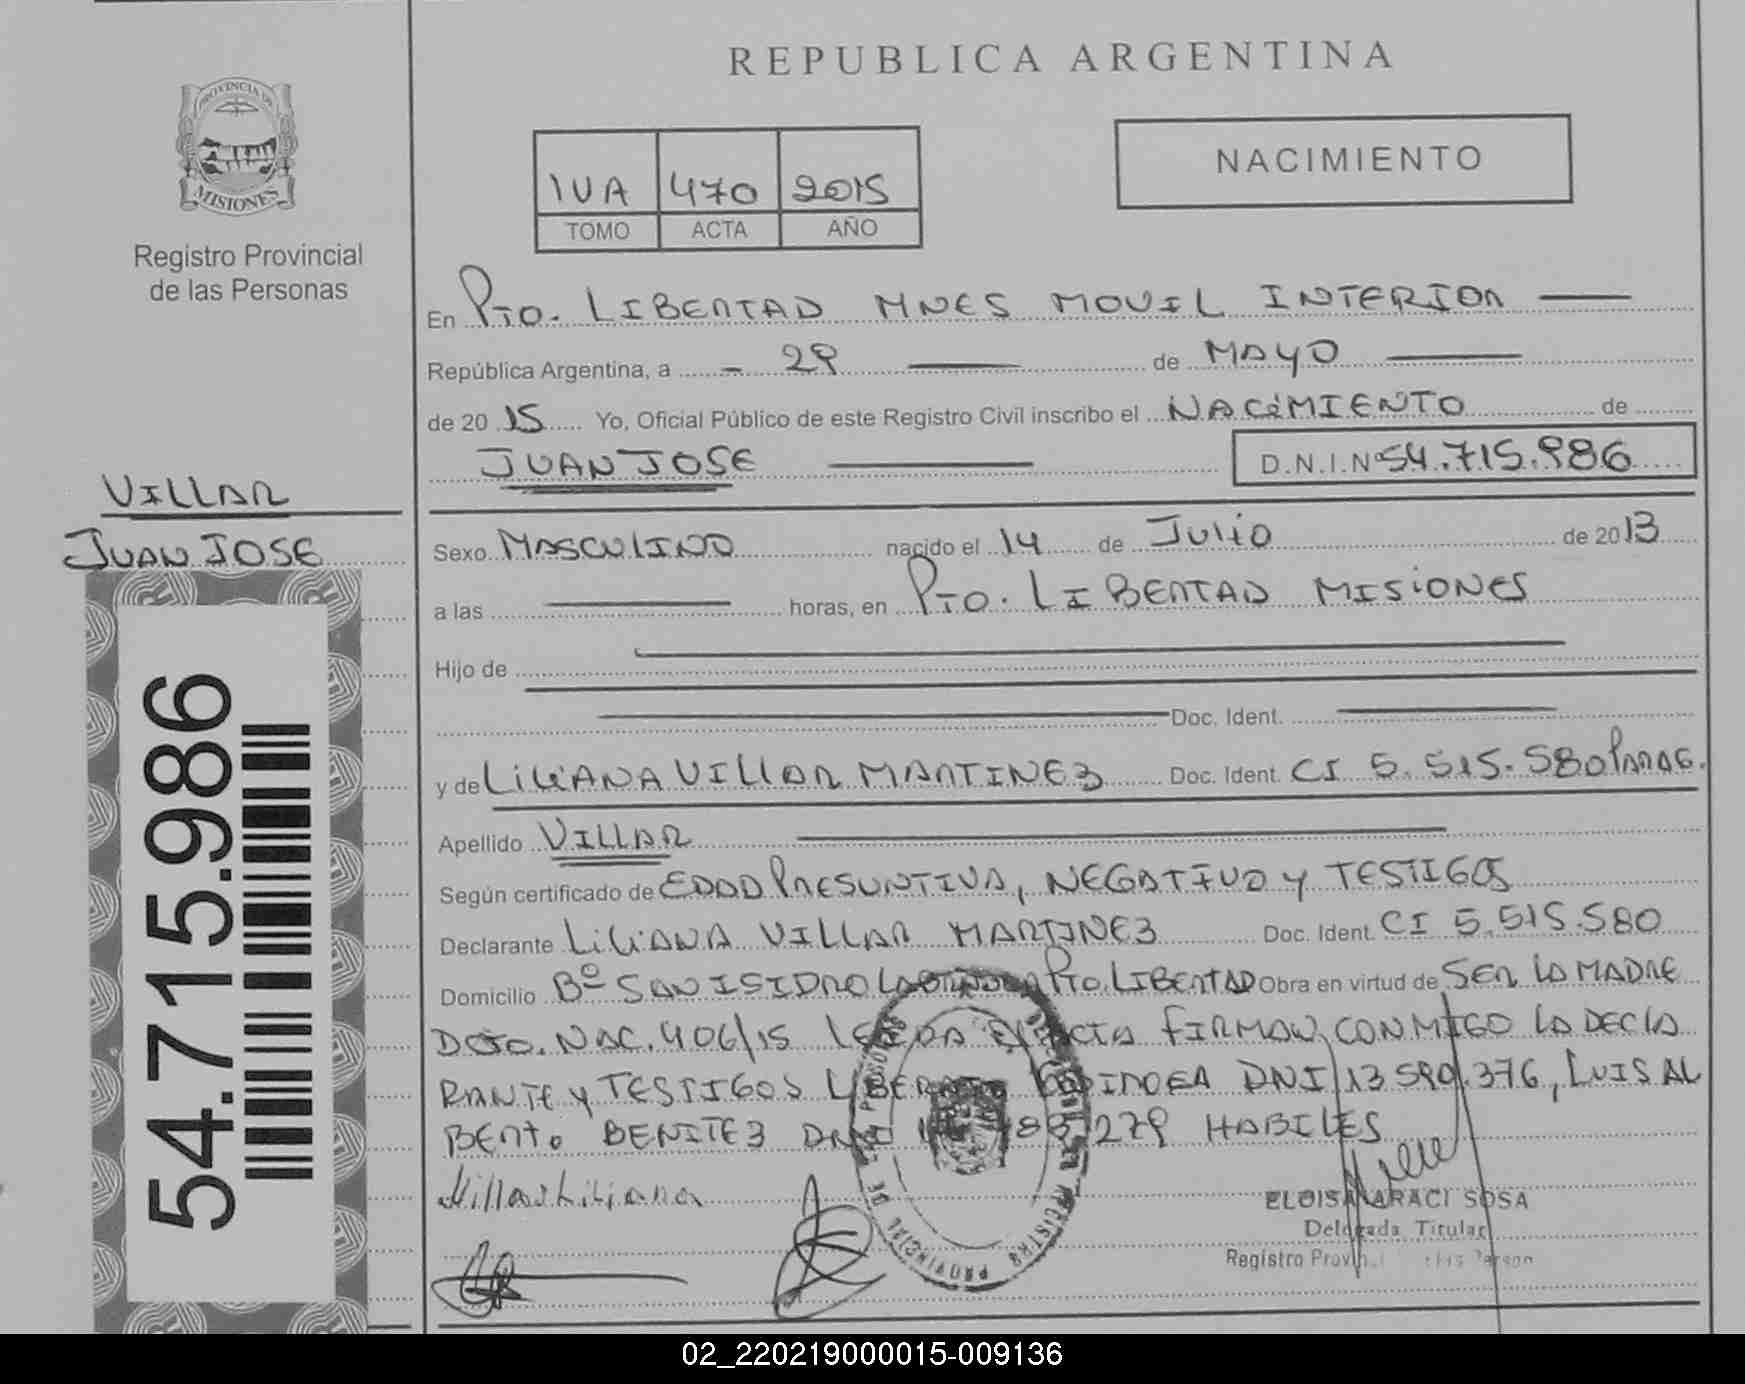 REPUBLICA ARGENTINA
PROVINCIA DE
MISIONES
Registro Provincial
de las Personas
NACIMIENTO
IVA 470 2015
TOMO ACTA AÑO
En Pto. LIBERTAD MNES MOVIL INTERIOR
República Argentina, a 29 de MAYO
de 20 15 Yo, Oficial Público de este Registro Civil inscribo el NACIMIENTO de
JUAN JOSE D.N.I.Nº 54.715.986
VILLAR
JUAN JOSE
54.715.986
Sexo MASCULINO nacido el 14 de Julio de 20 13
a las horas, en Pto. LIBERTAD MISIONES
Hijo de
Doc. Ident.
y de LILIANA VILLAR MARTINEZ Doc. Ident. CI 5.515.580 PARAG.
Apellido VILLAR
Según certificado de EDAD PRESUNTIVA, NEGATIVO y TESTIGOS
Declarante LILIANA VILLAR MARTINEZ Doc. Ident. CI 5.515.580
Domicilio Bº SAN ISIDRO LABRADOR Pto. LIBERTAD Obra en virtud de SER LA MADRE
DCTO. NAC. 406/15 LEIDA EL ACTA FIRMAN CONMIGO LA DECLA
RANTE y TESTIGOS DNI 13.590.376, LUIS AL
BERTO BENITEZ DNI 279 HABILES
Villar Liliana
ELOISA ARACI SOSA
Delegada Titular
Registro Provin. las Person
REGISTRO PROVINCIAL DE LAS PERSONAS
02_220219000015-009136